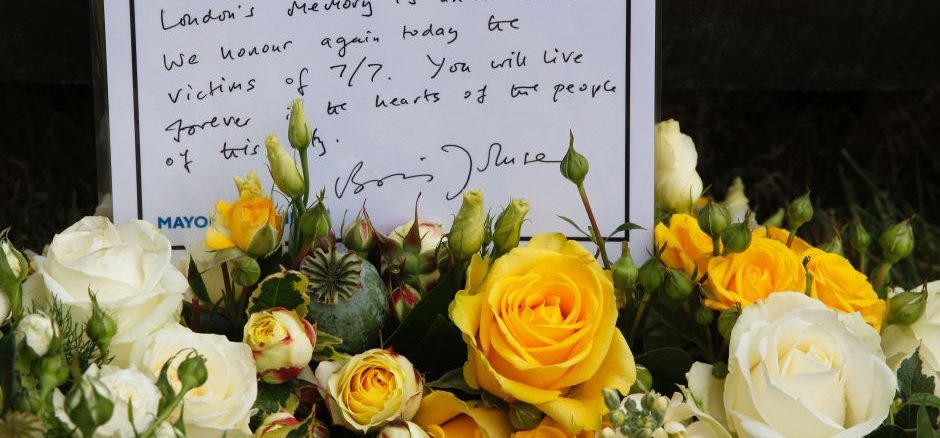 London's memory is
We honour again today the
victims of 7/7. You will live
forever the hearts of the people
of this
Boris Johnson
MAYO